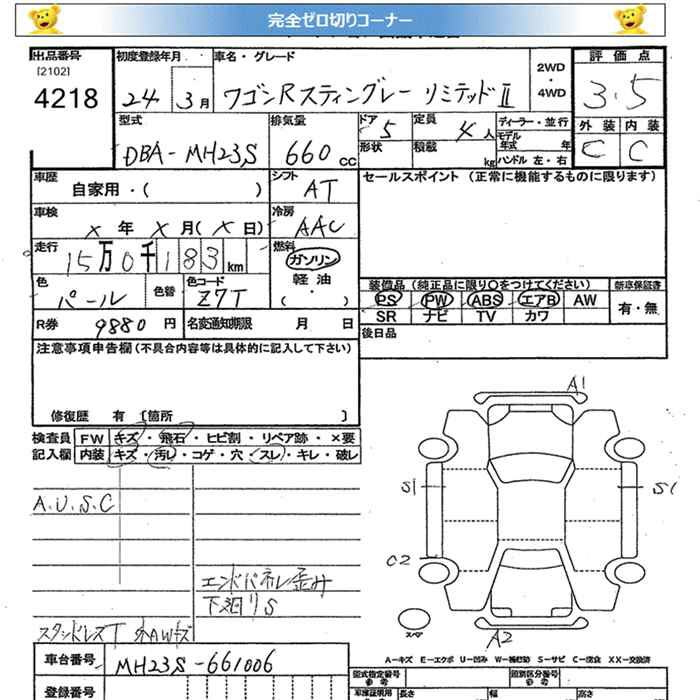 完全ゼロ切りコーナー
出品番号 初度登録年月 車名・グレード 2WD ・ 4WD 評価点
[2102]
4218 24 3月 ワゴンRスティングレー リミテッドII 3.5
型式 排気量 ドア 5 定員 4人 ディーラー・並行 外装 内装
DBA-MH23S 660cc 形状 積載 kg モデル年式 年式 ハンドル 左・右 C C
車歴 自家用・( ) シフト AT セールスポイント (正常に機能するものに限ります)
車検 X年 X月(X日) 冷房 AAC
走行 15万0千183km 燃料 ガソリン 軽油 ・( )
色 パール 色替 色コード Z7T 装備品 (純正品に限り○をつけてください) 新車保証書
PS PW ABS エアB AW 有・無
SR ナビ TV カワ
R券 9880円 名変通知期限 月 日 後日品
注意事項申告欄(不具合内容等は具体的に記入して下さい)
修復歴 有 [箇所 ]
検査員 FW キズ・飛石・ヒビ割・リペア跡・×要
記入欄 内装 キズ・汚れ・コゲ・穴・スレ・キレ・破レ
A1
S1 S1
A.U.S.C
C2
エンドパネル歪み
下廻りS
スタッドレスT 外AWキズ
スペア
A2
A-キズ E-エクボ U-凹み W-補修跡 S-サビ C-腐食 XX-交換済
車台番号 MH23S-661006 型式指定番号 参考 類別区分番号 参考
登録番号 車庫証明用 長さ 幅 高さ